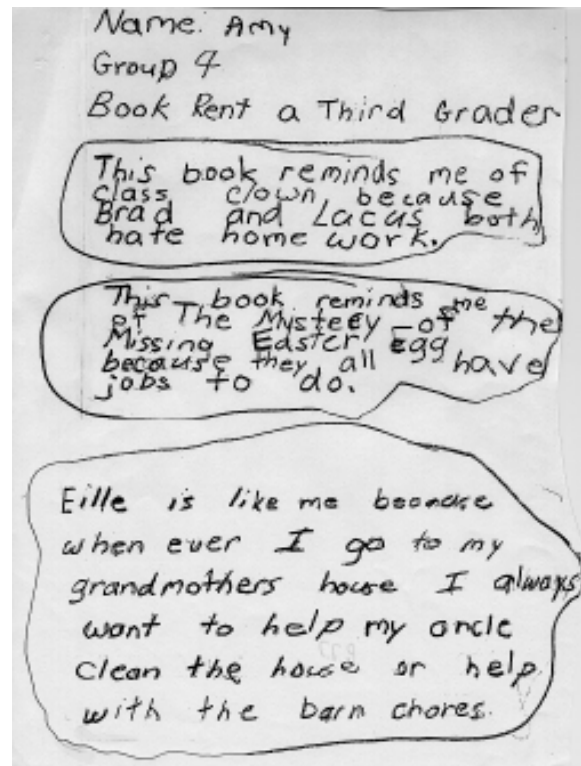 Name: Amy
Group 4
Book Rent a Third Grader
This book reminds me of
class clown, because
Brad and Lucus both
hate home work.
This book reminds me
of The Mysteey of the
Missing Easter egg
because they all have
jobs to do.
Eille is like me because
when ever I go to my
grandmothers house I always
want to help my oncle
clean the house or help
with the barn chores.